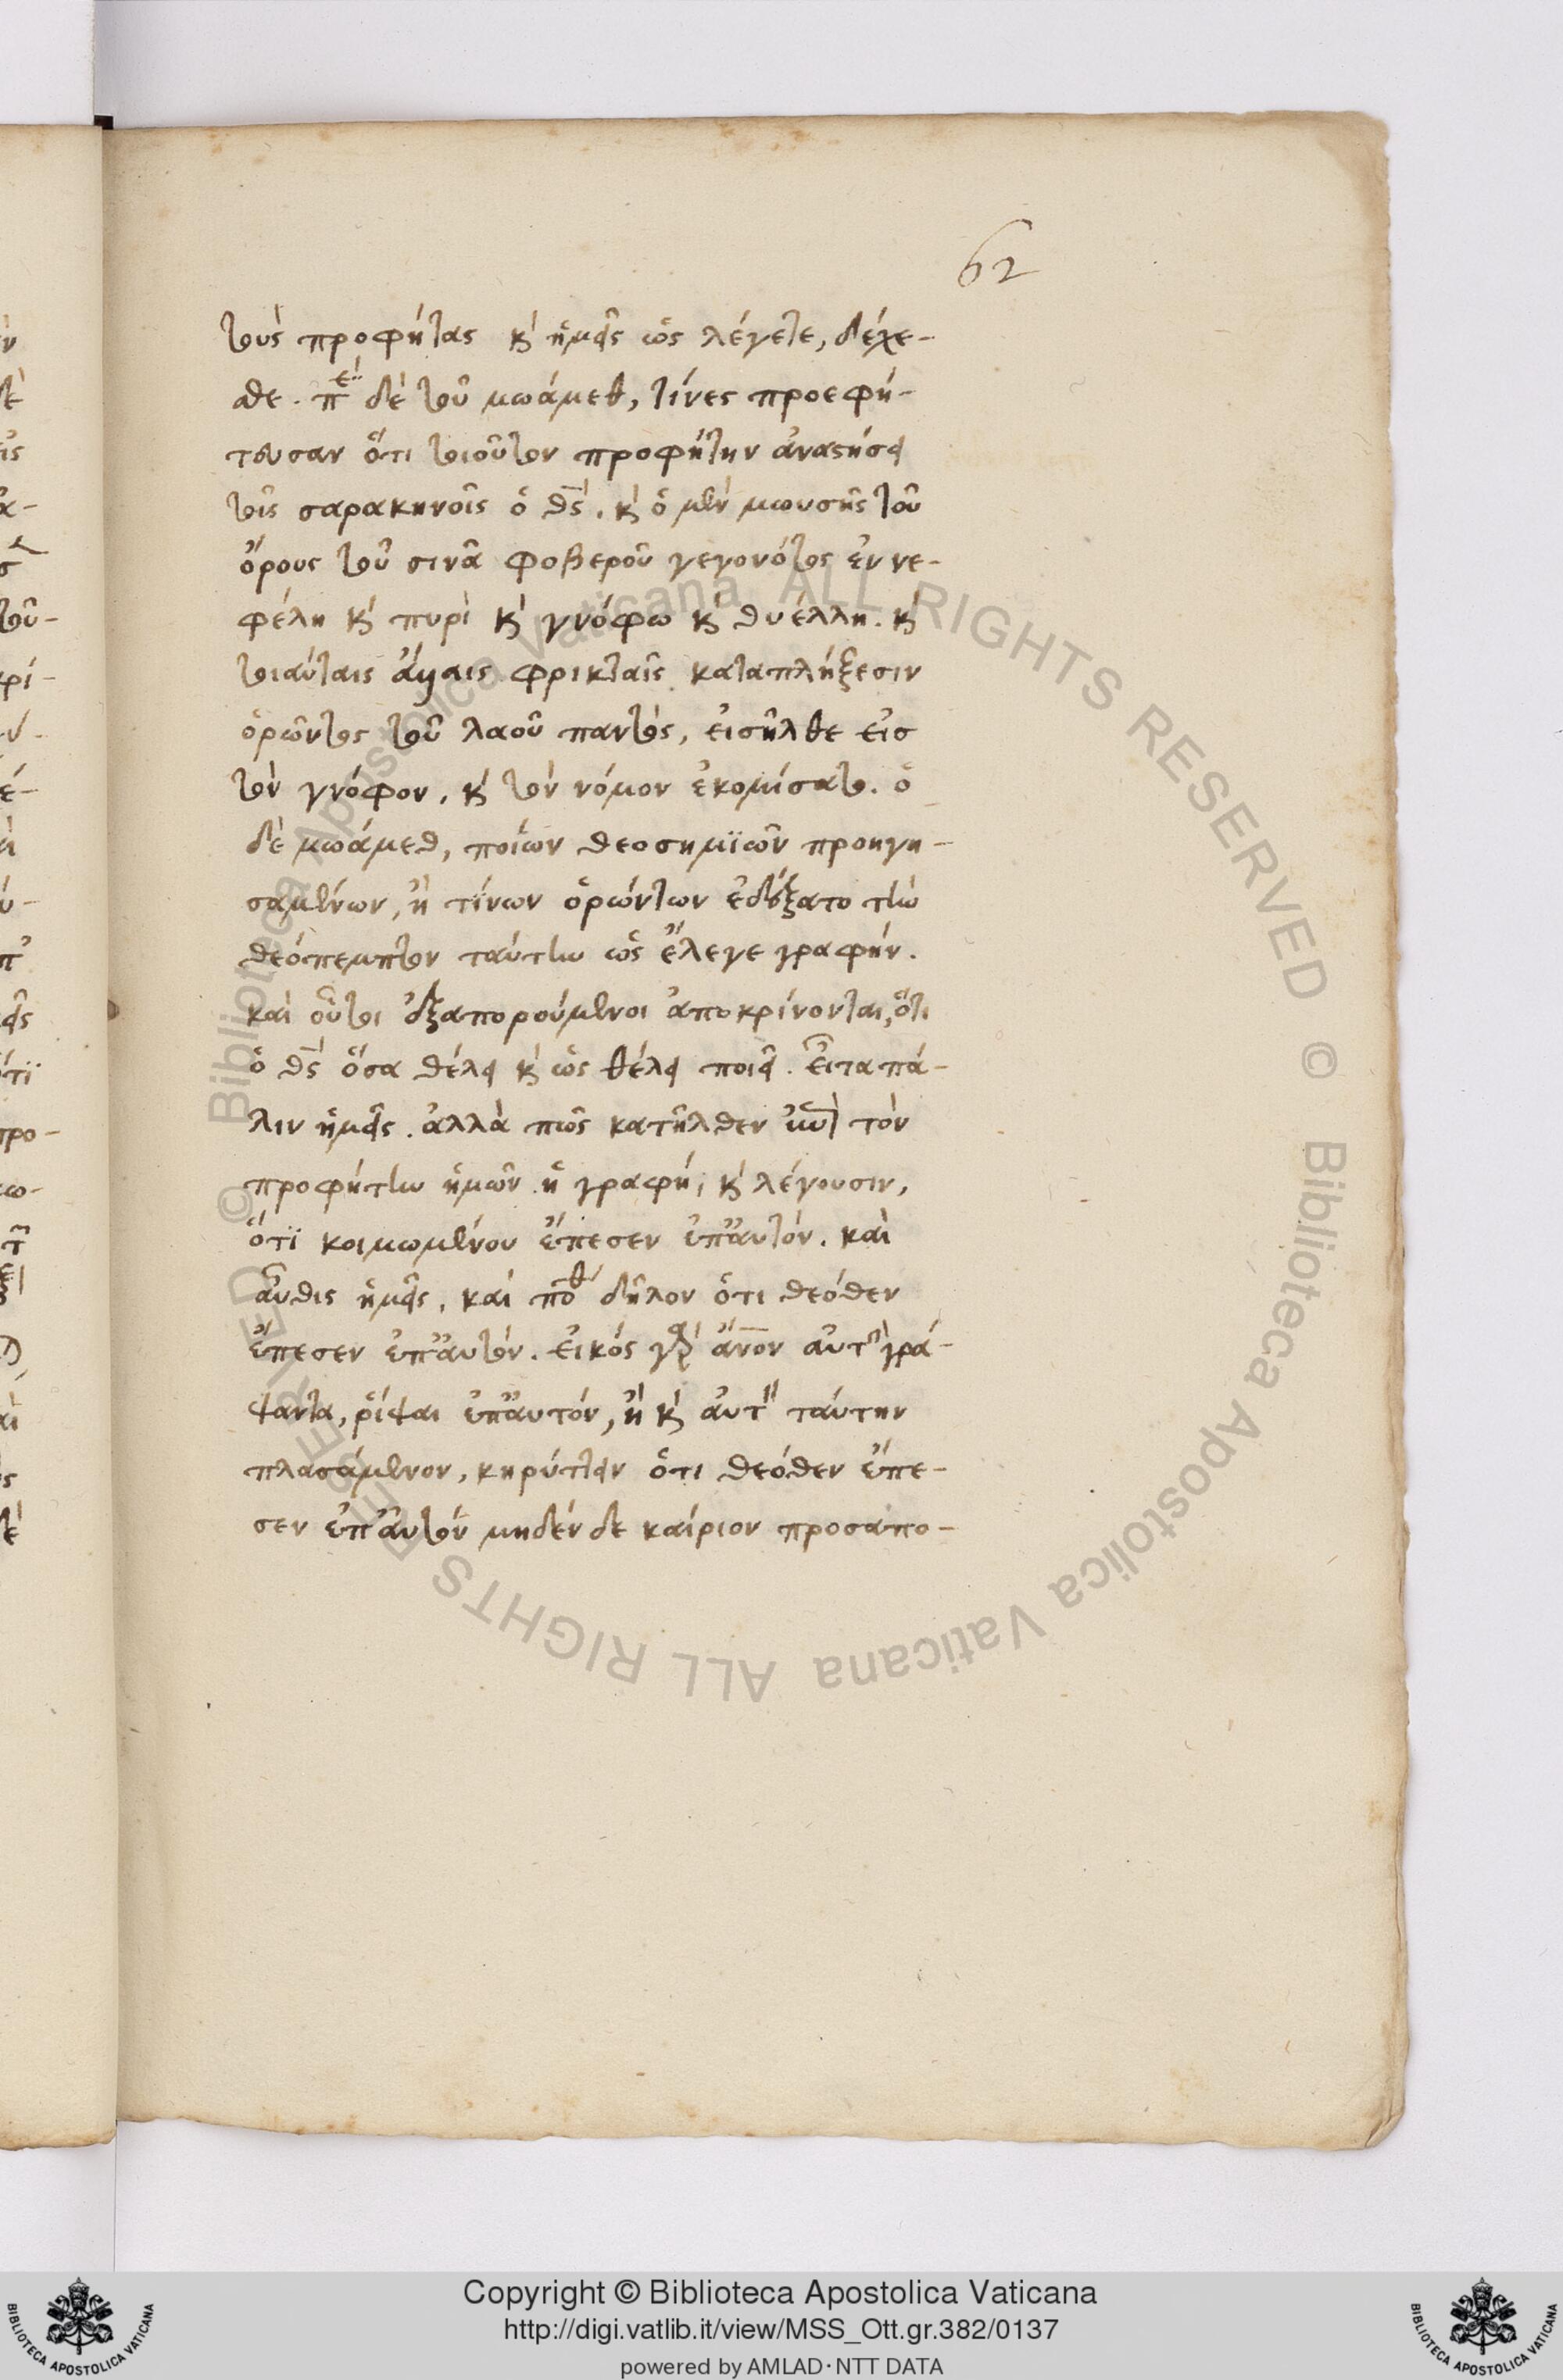 62
τοὺς προφήτας κ̀ ἡμεῖς ὡς λέγετε, δέχε-
σθε. πεὶ δὲ τοῦ μωάμεθ, τίνες προεφή-
τευσαν ὅτι τοιοῦτον προφήτην ἀναστήσει
τοῖς σαρακηνοῖς ὁ θς̄. κ̀ ὁ μὲν μωυσῆς τοῦ
ὄρους τοῦ σινᾶ φοβεροῦ γεγονότος ἐν νε-
φέλη κ̀ πυρὶ κ̀ γνόφω κ̀ θυέλλη. κ̀
τοιαύταις ἄλλαις φρικταῖς καταπλήξεσιν
ὁρῶντος τοῦ λαοῦ παντός, εἰσῆλθε εἰσ
τὸν γνόφον, κ̀ τὸν νόμον ἐκομίσατο. ὁ
δὲ μωάμεθ, ποίων θεοσημϊῶν προηγη-
σαμένων, ἢ τίνων ὁρώντων ἐδέξατο τὴν
θεόπεμπτον ταύτην ὡς ἔλεγε γραφήν.
καὶ οὗτοι ἐξαπορούμενοι ἀποκρίνονται, ὅτι
ὁ θς̄ ὅσα θέλει κ̀ ὡς θέλει ποιεῖ. εἶτα πά-
λιν ἡμεῖς. ἀλλὰ πῶς κατῆλθεν τὸν
προφήτην ἡμῶν ἡ γραφή, κ̀ λέγουσιν,
ὅτϊ κοιμωμένου ἔπεσεν ἐπ' αυτόν. καὶ
αὖθις ἡμεῖς, καὶ πόθ δῆλον ὅτι θεόθεν
ἔπεσεν ἐπ' αυτόν. εἰκός γὰρ ἄνον αὐτὴ γρά-
ψαντα, ῥίψαι ἐπ' αυτόν, ἢ κ̀ ἀυτ ταύτην
πλασάμενον, κηρύττειν ὅτι θεόθεν ἔπε-
σεν ἐπ' αυτόν μηδέν δε καίριον προσαπο-
Copyright © Biblioteca Apostolica Vaticana
http://digi.vatlib.it/view/MSS_Ott.gr.382/0137
powered by AMLAD·NTT DATA
© Biblioteca Apostolica Vaticana ALL RIGHTS RESERVED
© Biblioteca Apostolica Vaticana ALL RIGHTS RESERVED
BIBLIOTECA APOSTOLICA VATICANA
BIBLIOTECA APOSTOLICA VATICANA